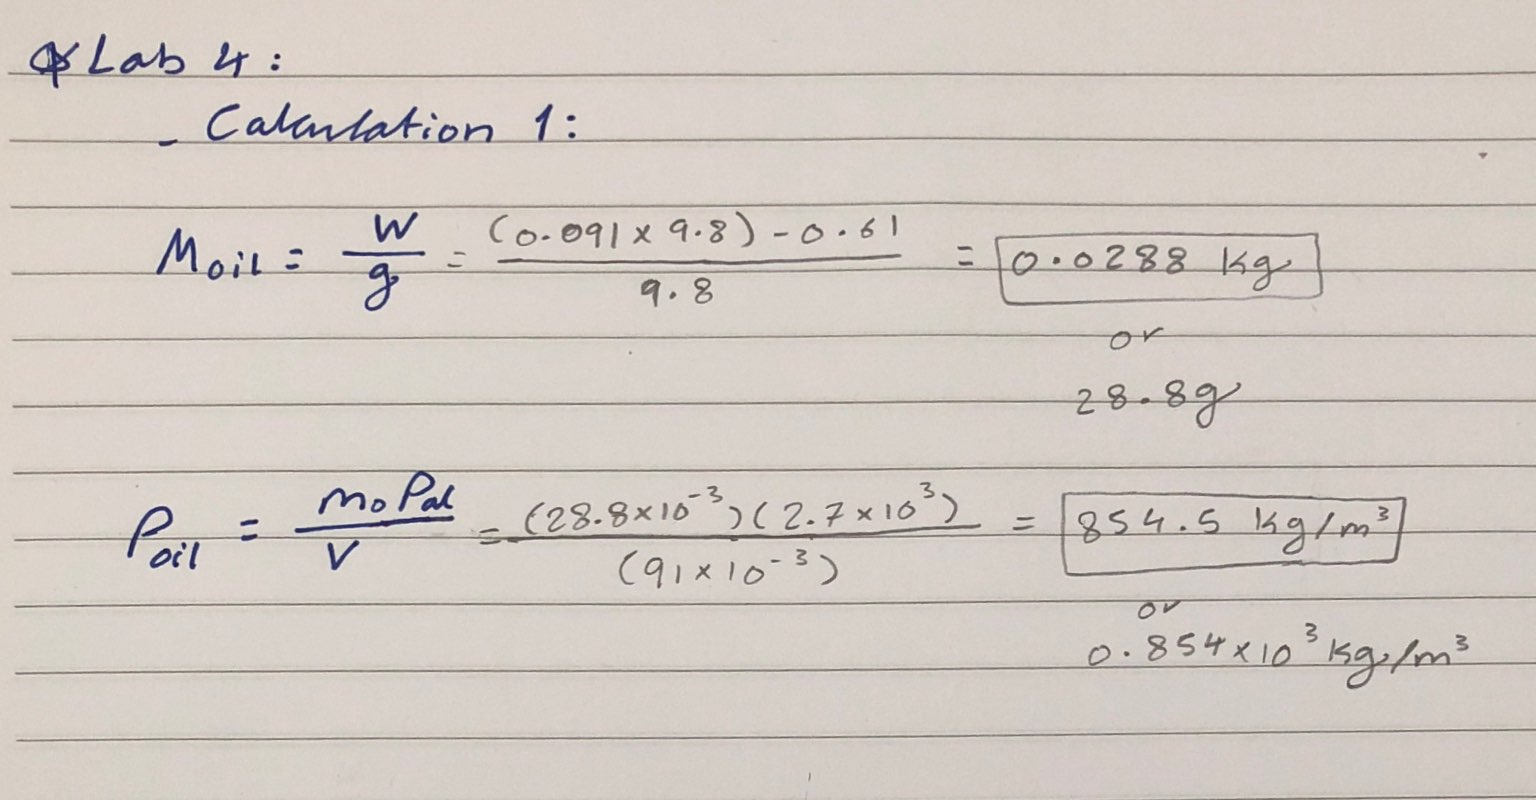 Lab 4:
- Calculation 1:
Moil = W/g = (0.091 x 9.8) - 0.61 / 9.8 = 0.0288 kg
or
28.8g
Poil = mo Pal / V = (28.8x10⁻³)(2.7x10³) / (91x10⁻³) = 854.5 kg/m³
or
0.854x10³ kg/m³